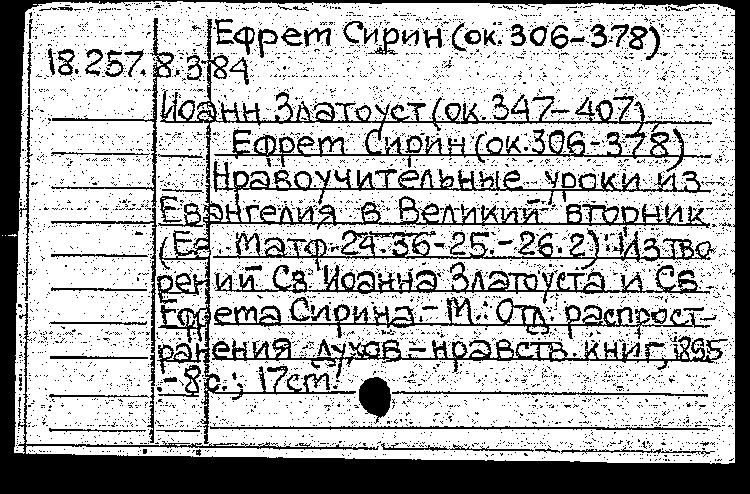 Ефрет Сирин (ок. 306-378)
18.257.8.384
Иоанн Златоуст (ок. 347-407)
Ефрет Сирин (ок. 306-378)
Нравоучительные уроки из
Евангелия в Великий вторник
(Ев. Матф. 24.36-25.-26.2): Изтво
рений Св Иоанна Златоуста и Св
Ефрета Сирина.- М.: Отд. распрост-
ранения духов-нравств. книг, 1895
.-8с.; 17ст.